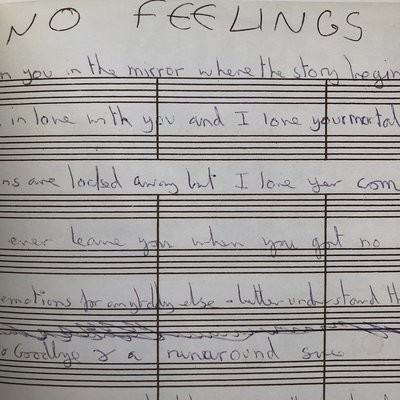 NO FEELINGS
n you in the mirror where the story begin
in love with you and I love your mortal
ns are locked away but I love yer com
ever leave you when you got no
emotions for anybody else - better understand th
o Goodbye & a runaround sue